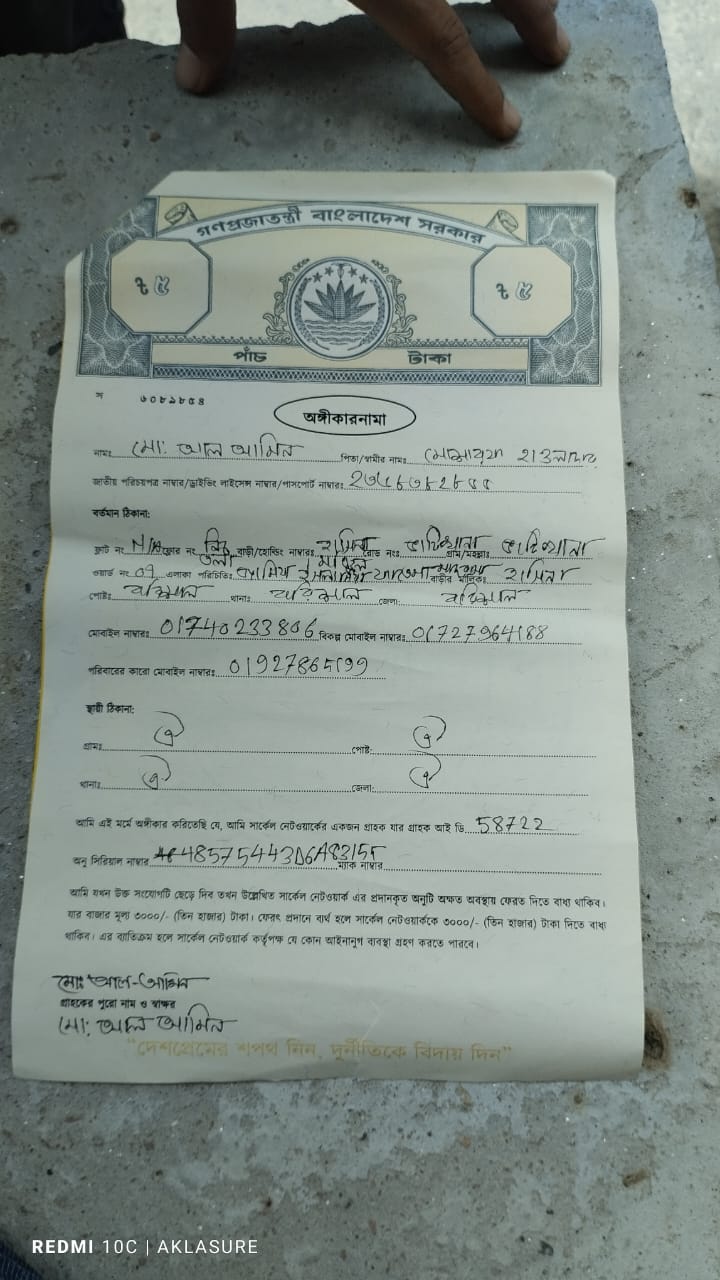 গণপ্রজাতন্ত্রী বাংলাদেশ সরকার
৳ ৫ ৳ ৫
পাঁচ টাকা
৬০৮৯৮৫৪
অঙ্গীকারনামা
নামঃ মো: আল আমিন পিতা/স্বামীর নামঃ হাওলাদার
জাতীয় পরিচয়পত্র নাম্বার/ড্রাইভিং লাইসেন্স নাম্বার/পাসপোর্ট নাম্বারঃ
বর্তমান ঠিকানা:
ফ্লাট নং N/A ফ্লোর নং নিচ তলা বাড়ী/হোল্ডিং নাম্বারঃ হাসিনা মঞ্জিল রোড নংঃ কাউনিয়া গ্রাম/মহল্লাঃ
ওয়ার্ড নং 07 এলাকা পরিচিতিঃ বাড়ীর মালিকঃ হাসিনা
পোষ্টঃ বরিশাল থানাঃ বরিশাল জেলা: বরিশাল
মোবাইল নাম্বারঃ 01740233806 বিকল্প মোবাইল নাম্বারঃ 01727964188
পরিবারের কারো মোবাইল নাম্বারঃ 01927865199
স্থায়ী ঠিকানা:
গ্রামঃ ঐ পোষ্ট: ঐ
থানাঃ ঐ জেলা: ঐ
আমি এই মর্মে অঙ্গীকার করিতেছি যে, আমি সার্কেল নেটওয়ার্কের একজন গ্রাহক যার গ্রাহক আই ডি 58722
অনু সিরিয়াল নাম্বার 485754443D6A8315F ম্যাক নাম্বার
আমি যখন উক্ত সংযোগটি ছেড়ে দিব তখন উল্লেখিত সার্কেল নেটওয়ার্ক এর প্রদানকৃত অনুটি অক্ষত অবস্থায় ফেরত দিতে বাধ্য থাকিব।
যার বাজার মূল্য ৩০০০/- (তিন হাজার) টাকা। ফেরৎ প্রদানে ব্যর্থ হলে সার্কেল নেটওয়ার্ককে ৩০০০/- (তিন হাজার) টাকা দিতে বাধ্য
থাকিব। এর ব্যতিক্রম হলে সার্কেল নেটওয়ার্ক কর্তৃপক্ষ যে কোন আইনানুগ ব্যবস্থা গ্রহণ করতে পারবে।
মোঃ আল-আমিন
গ্রাহকের পুরো নাম ও স্বাক্ষর
মো: আল আমিন
"দেশপ্রেমের শপথ নিন, দুর্নীতিকে বিদায় দিন"
REDMI 10C | AKLASURE